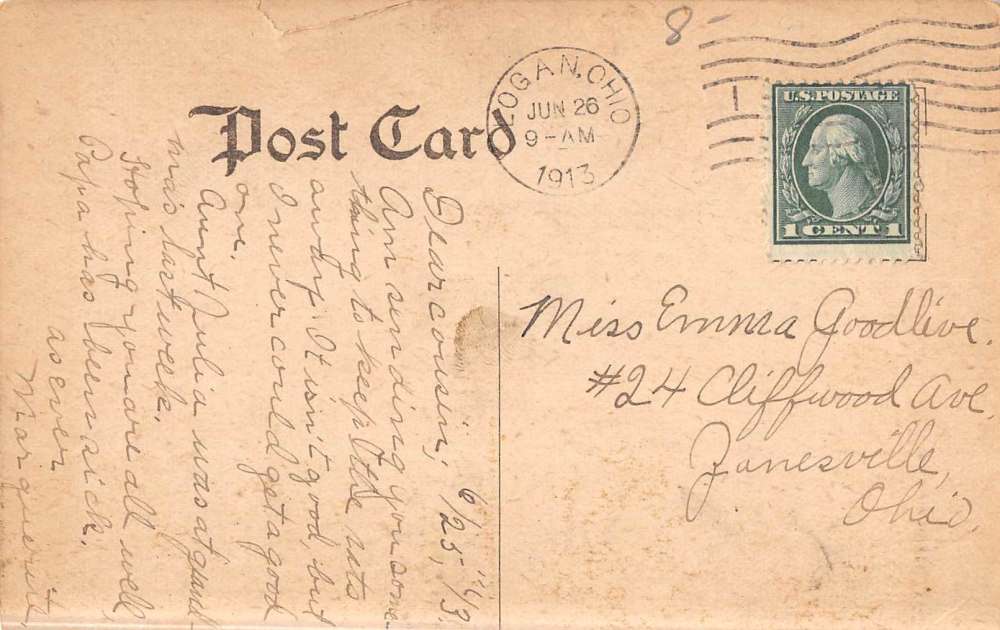 8-
LOGAN, OHIO
JUN 26
9-AM
1913
U.S. POSTAGE
1 CENT 1
Post Card
6/25,-'13.
Dear cousin;
Am sending you some-
thing to keep the rats
away. It isn't good, but
I never could get a good
one.
Aunt Julia was at grand-
ma's last week.
Hoping you are all well,
Papa has been sick.
as ever
Marguerite,
Miss Emma Goodlive.
#24 Cliffwood Ave,
Zanesville,
Ohio.